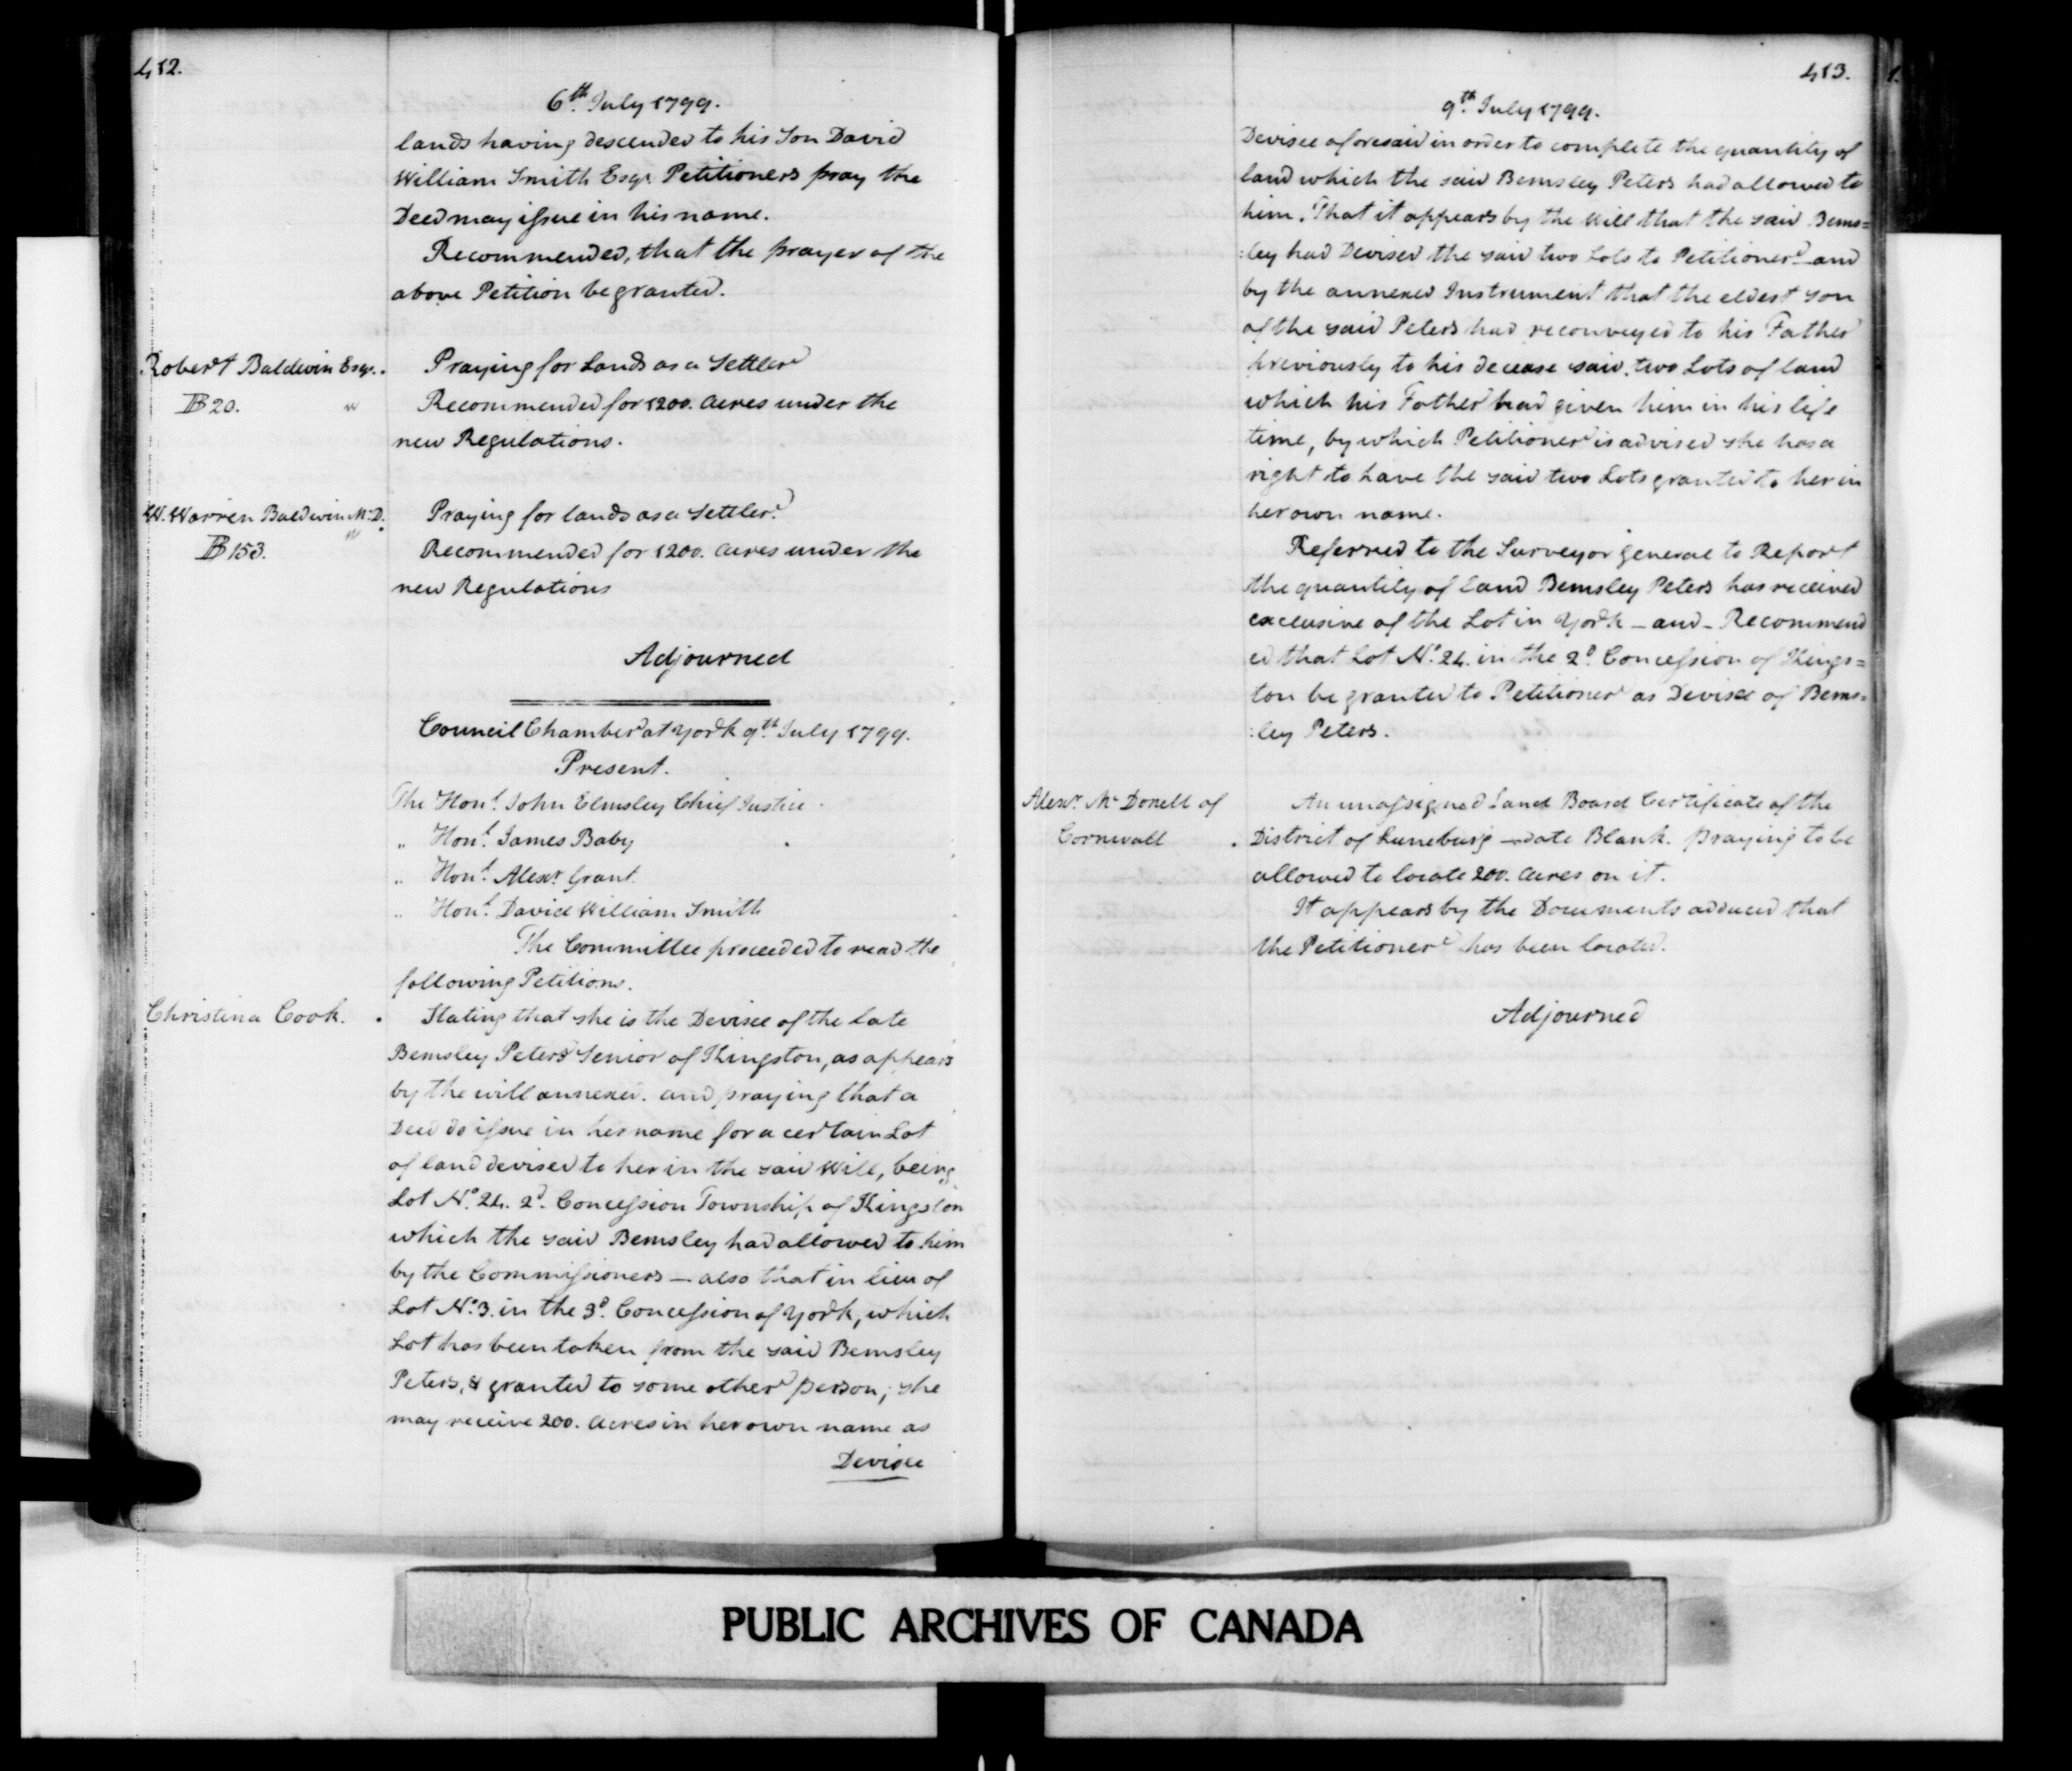 412.
6th. July 1799.
lands having descended to his Son David
William Smith Esqr. Petitioners pray the
Deed may issue in his name.
Recommended, that the prayer of the
above Petition be granted.
Robert Baldwin Esqr.
B 20.
Praying for Lands as a Settler
Recommended for 1200. Acres under the
new Regulations.
W. Warren Baldwin M.D.
B 153.
Praying for lands as a Settler.
Recommended for 1200. Acres under the
new Regulations
Adjourned
Council Chamber at York 9th. July 1799.
Present.
The Honl. John Elmsley Chief Justice
" Honl. James Baby
" Honl. Alexr. Grant
" Honl. David William Smith
The Committee proceeded to read the
following Petitions.
Christina Cook.
Stating that she is the Devisee of the late
Bemsley Peters Senior of Kingston, as appears
by the will annexed. and praying that a
Deed do issue in her name for a certain Lot
of land devised to her in the said Will, being
Lot No. 24. 2d. Concession Township of Kingston
which the said Bemsley had allowed to him
by the Commissioners – also that in lieu of
Lot No. 3. in the 3d. Concession of York, which
Lot has been taken from the said Bemsley
Peters, & granted to some other person; she
may receive 200. Acres in her own name as
Devisee
413.
9th. July 1799.
Devisee aforesaid in order to complete the quantity of
land which the said Bemsley Peters had allowed to
him. That it appears by the Will that the said Bems=
:ley had Devised the said two Lots to Petitioner and
by the annexed Instrument that the eldest Son
of the said Peters had reconveyed to his Father
previously to his decease said two Lots of land
which his Father had given him in his life
time, by which Petitioner is advised she has a
right to have the said two Lots granted to her in
her own name.
Referred to the Surveyor general to Report
the quantity of land Bemsley Peters has received
exclusive of the Lot in York – and – Recommend
ed that Lot No. 24. in the 2d. Concession of Kings=
ton be granted to Petitioner as Devisee of Bems=
:ley Peters.
Alexr. McDonell of
Cornwall
An unassigned Land Board Certificate of the
District of Luneburg – date Blank. praying to be
allowed to locate 200. Acres on it.
It appears by the Documents adduced that
the Petitioner has been located.
Adjourned
PUBLIC ARCHIVES OF CANADA